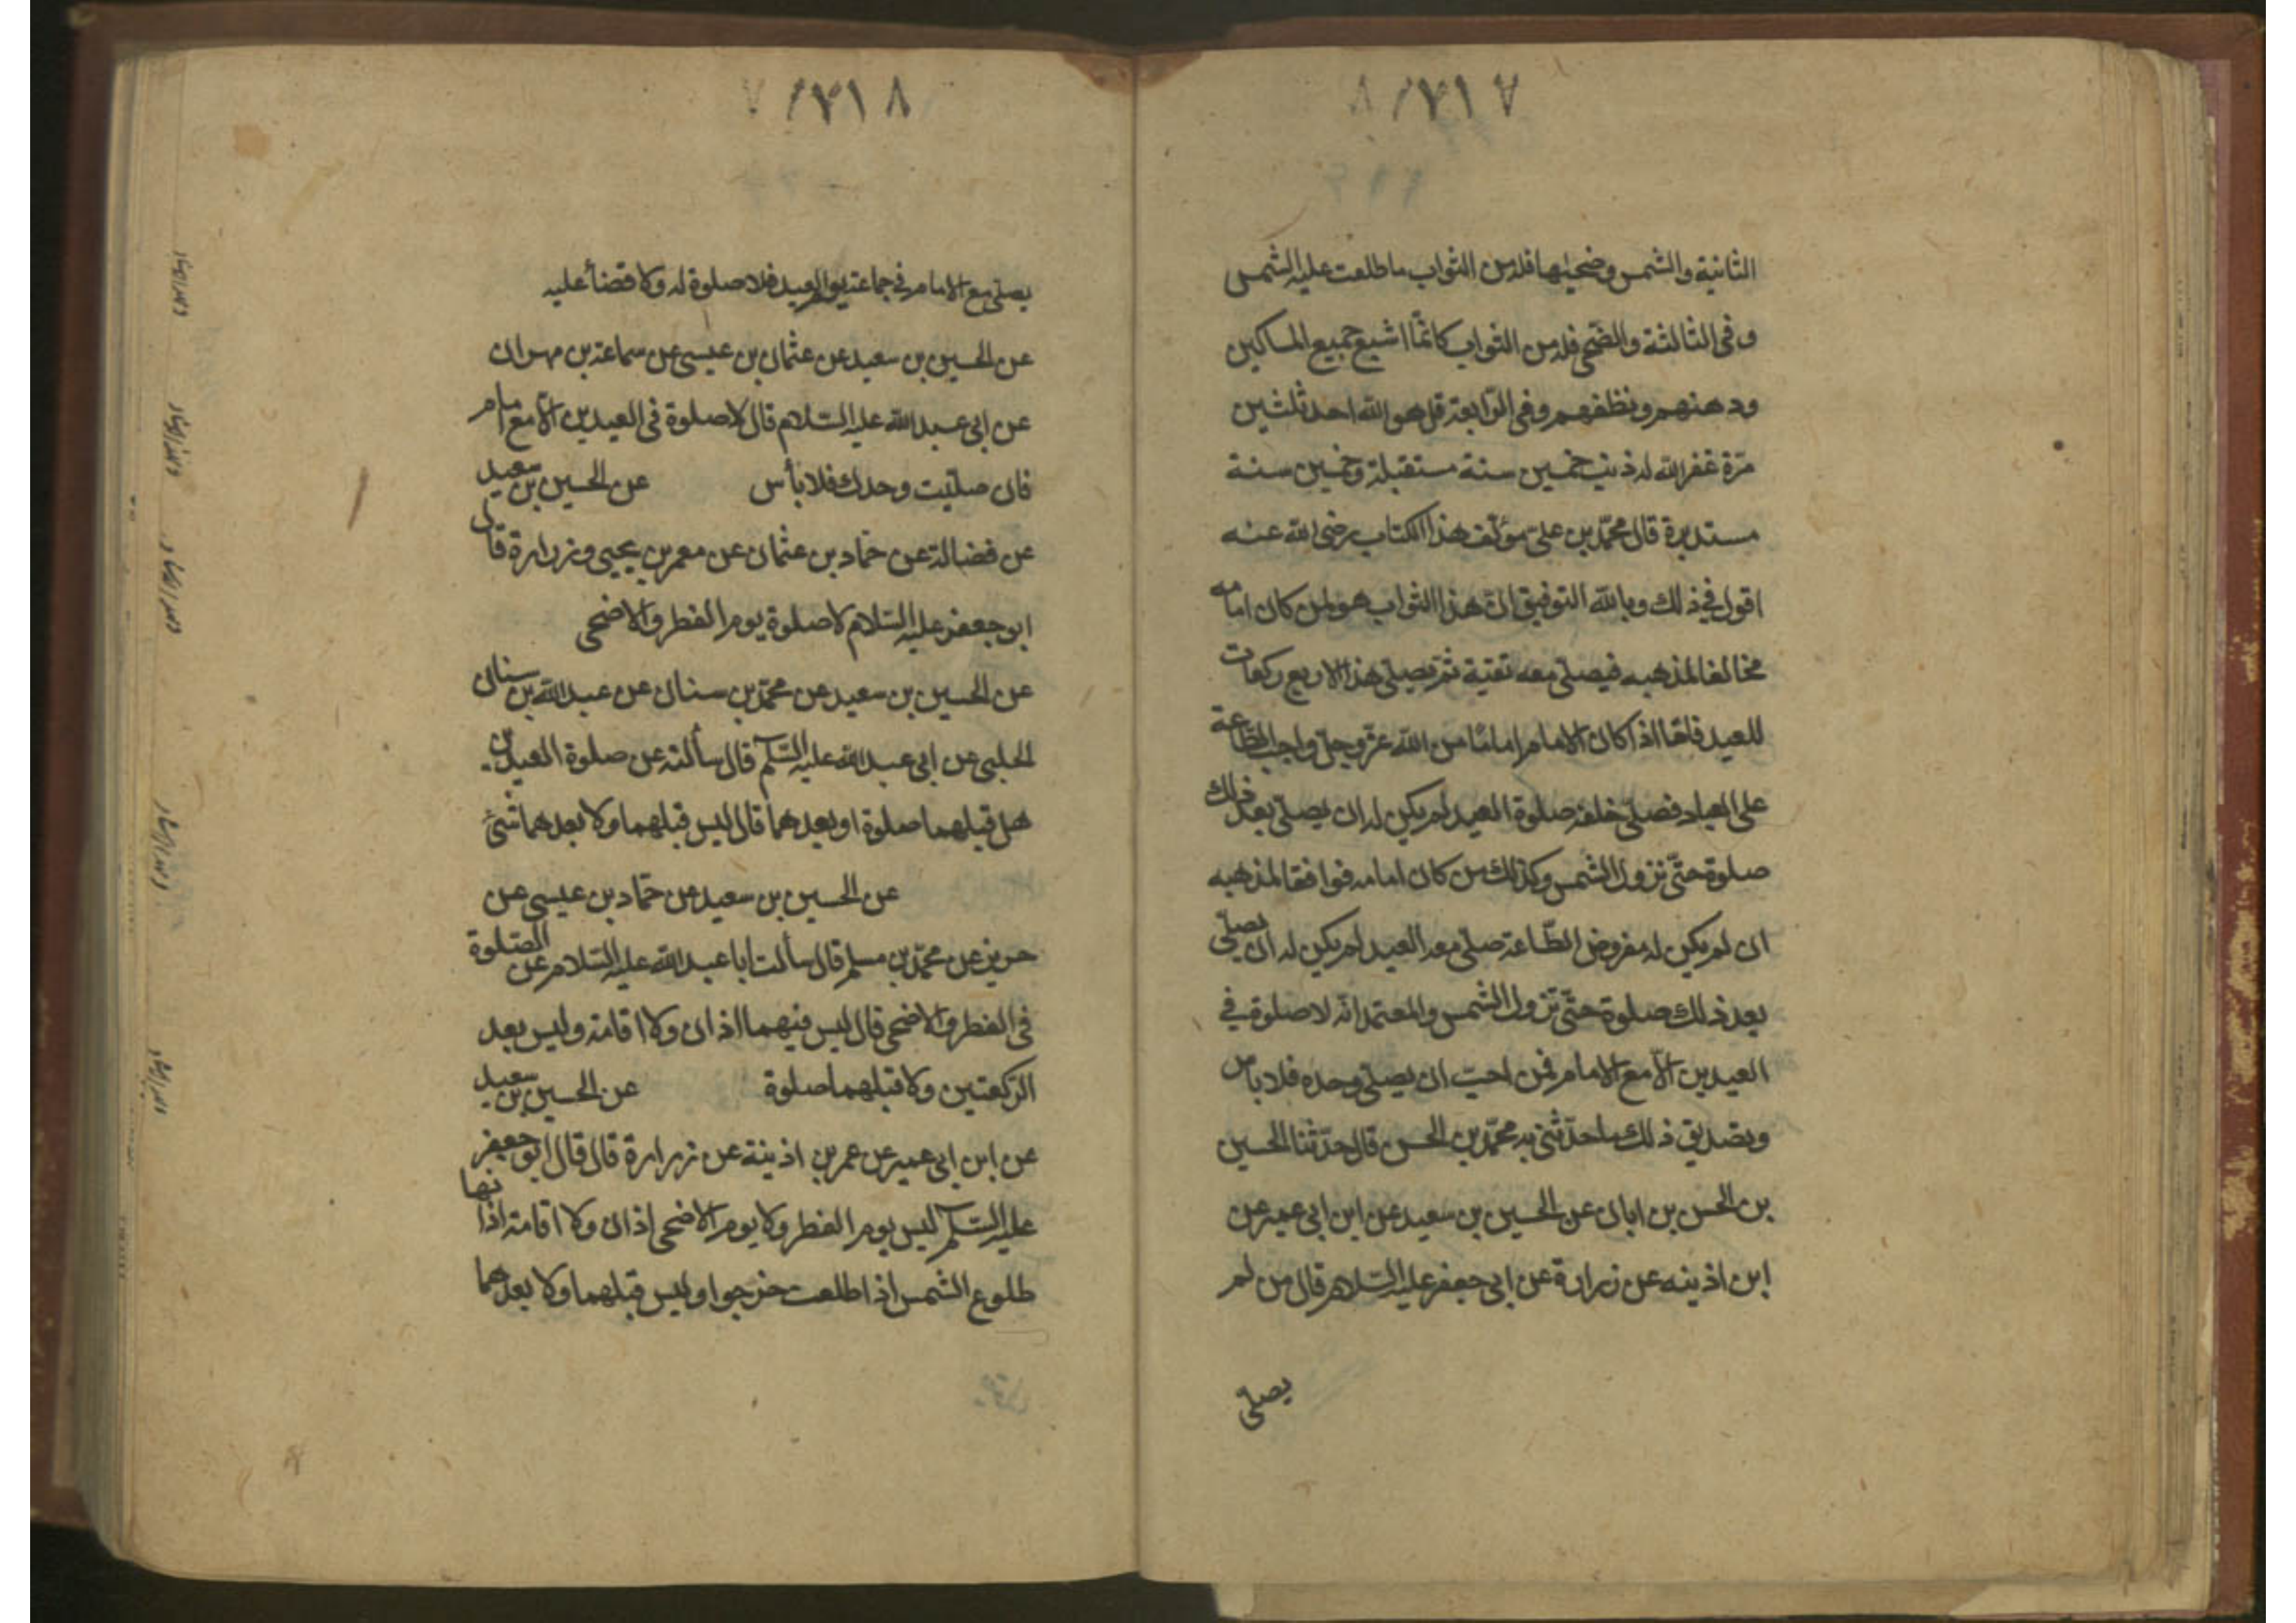 الثانية والشمس وضحيها فله من الثواب ما طلعت عليه الشمس
وفي الثالثة والضحى فله من الثواب كانّما اشبع جميع المساكين
ودهنهم ونظفهم وفي الرّابعة قل هو الله احد ثلثين
مرّة غفر الله له ذنب خمسين سنة مستقبلة وخمسين سنة
مستدبرة قال محمّد بن علىّ مؤلّف هذا الكتاب رضى الله عنه
اقول في ذلك وبالله التوفيق انّ هذا الثواب هو لمن كان امامه
مخالفا لمذهبه فيصلّى معه تقية ثمّ يصلّى هذا الاربع ركعات
للعيد فامّا اذا كان الامام امامًا من الله عزّ وجلّ واجب الطّاعة
على العباد فصلّى خلفه صلوة العيد لم يكن له ان يصلّى بعد ذلك
صلوة حتّى تزول الشمس وكذلك من كان امامه موافقا لمذهبه
ان لم يكن له مفروض الطّاعة صلى معه العيد لم يكن له ان يصلّى
بعد ذلك صلوة حتّى تزول الشمس والمعتمد انّه لا صلوة في
العيدين الّا مع الامام فمن احبّ ان يصلّى وحده فلا باس
وتصديق ذلك ما حدّثنى به محمّد بن الحسن قال حدّثنا الحسين
بن الحسن بن ابان عن الحسين بن سعيد عن ابن ابى عمير عن
ابن اذينه عن زرارة عن ابى جعفر عليه السّلام قال من لم
يصلّى
يصلّى مع الامام في جماعة يوم العيد فلا صلوة له ولا قضأ عليه
عن الحسين بن سعيد عن عثمان بن عيسى عن سماعة بن مهران
عن ابى عبد الله عليه السّلام قال لا صلوة في العيدين الّا مع امام
فان صلّيت وحدك فلا بأس عن الحسين بن سعيد
عن فضالة عن حمّاد بن عثمان عن معمر بن يحيى وزرارة قال
ابو جعفر عليه السّلام لا صلوة يوم الفطر والاضحى
عن الحسين بن سعيد عن محمّد بن سنان عن عبد الله بن سنان
الحلبى عن ابى عبد الله عليه السّلم قال سألته عن صلوة العيدين
هل قبلهما صلوة او بعدهما قال ليس قبلهما ولا بعدهما شئ
عن الحسين بن سعيد عن حمّاد بن عيسى عن
حريز عن محمّد بن مسلم قال سألت ابا عبد الله عليه السّلام عن الصّلوة
في الفطر والاضحى قال ليس فيهما اذان ولا اقامة وليس بعد
الرّكعتين ولا قبلهما صلوة عن الحسين بن سعيد
عن ابن ابى عمير عن عمر بن اذينة عن زرارة قال قال ابو جعفر
عليه السّلم ليس يوم الفطر ولا يوم الاضحى اذان ولا اقامة اذانها
طلوع الشمس اذا طلعت خرجوا وليس قبلهما ولا بعدهما